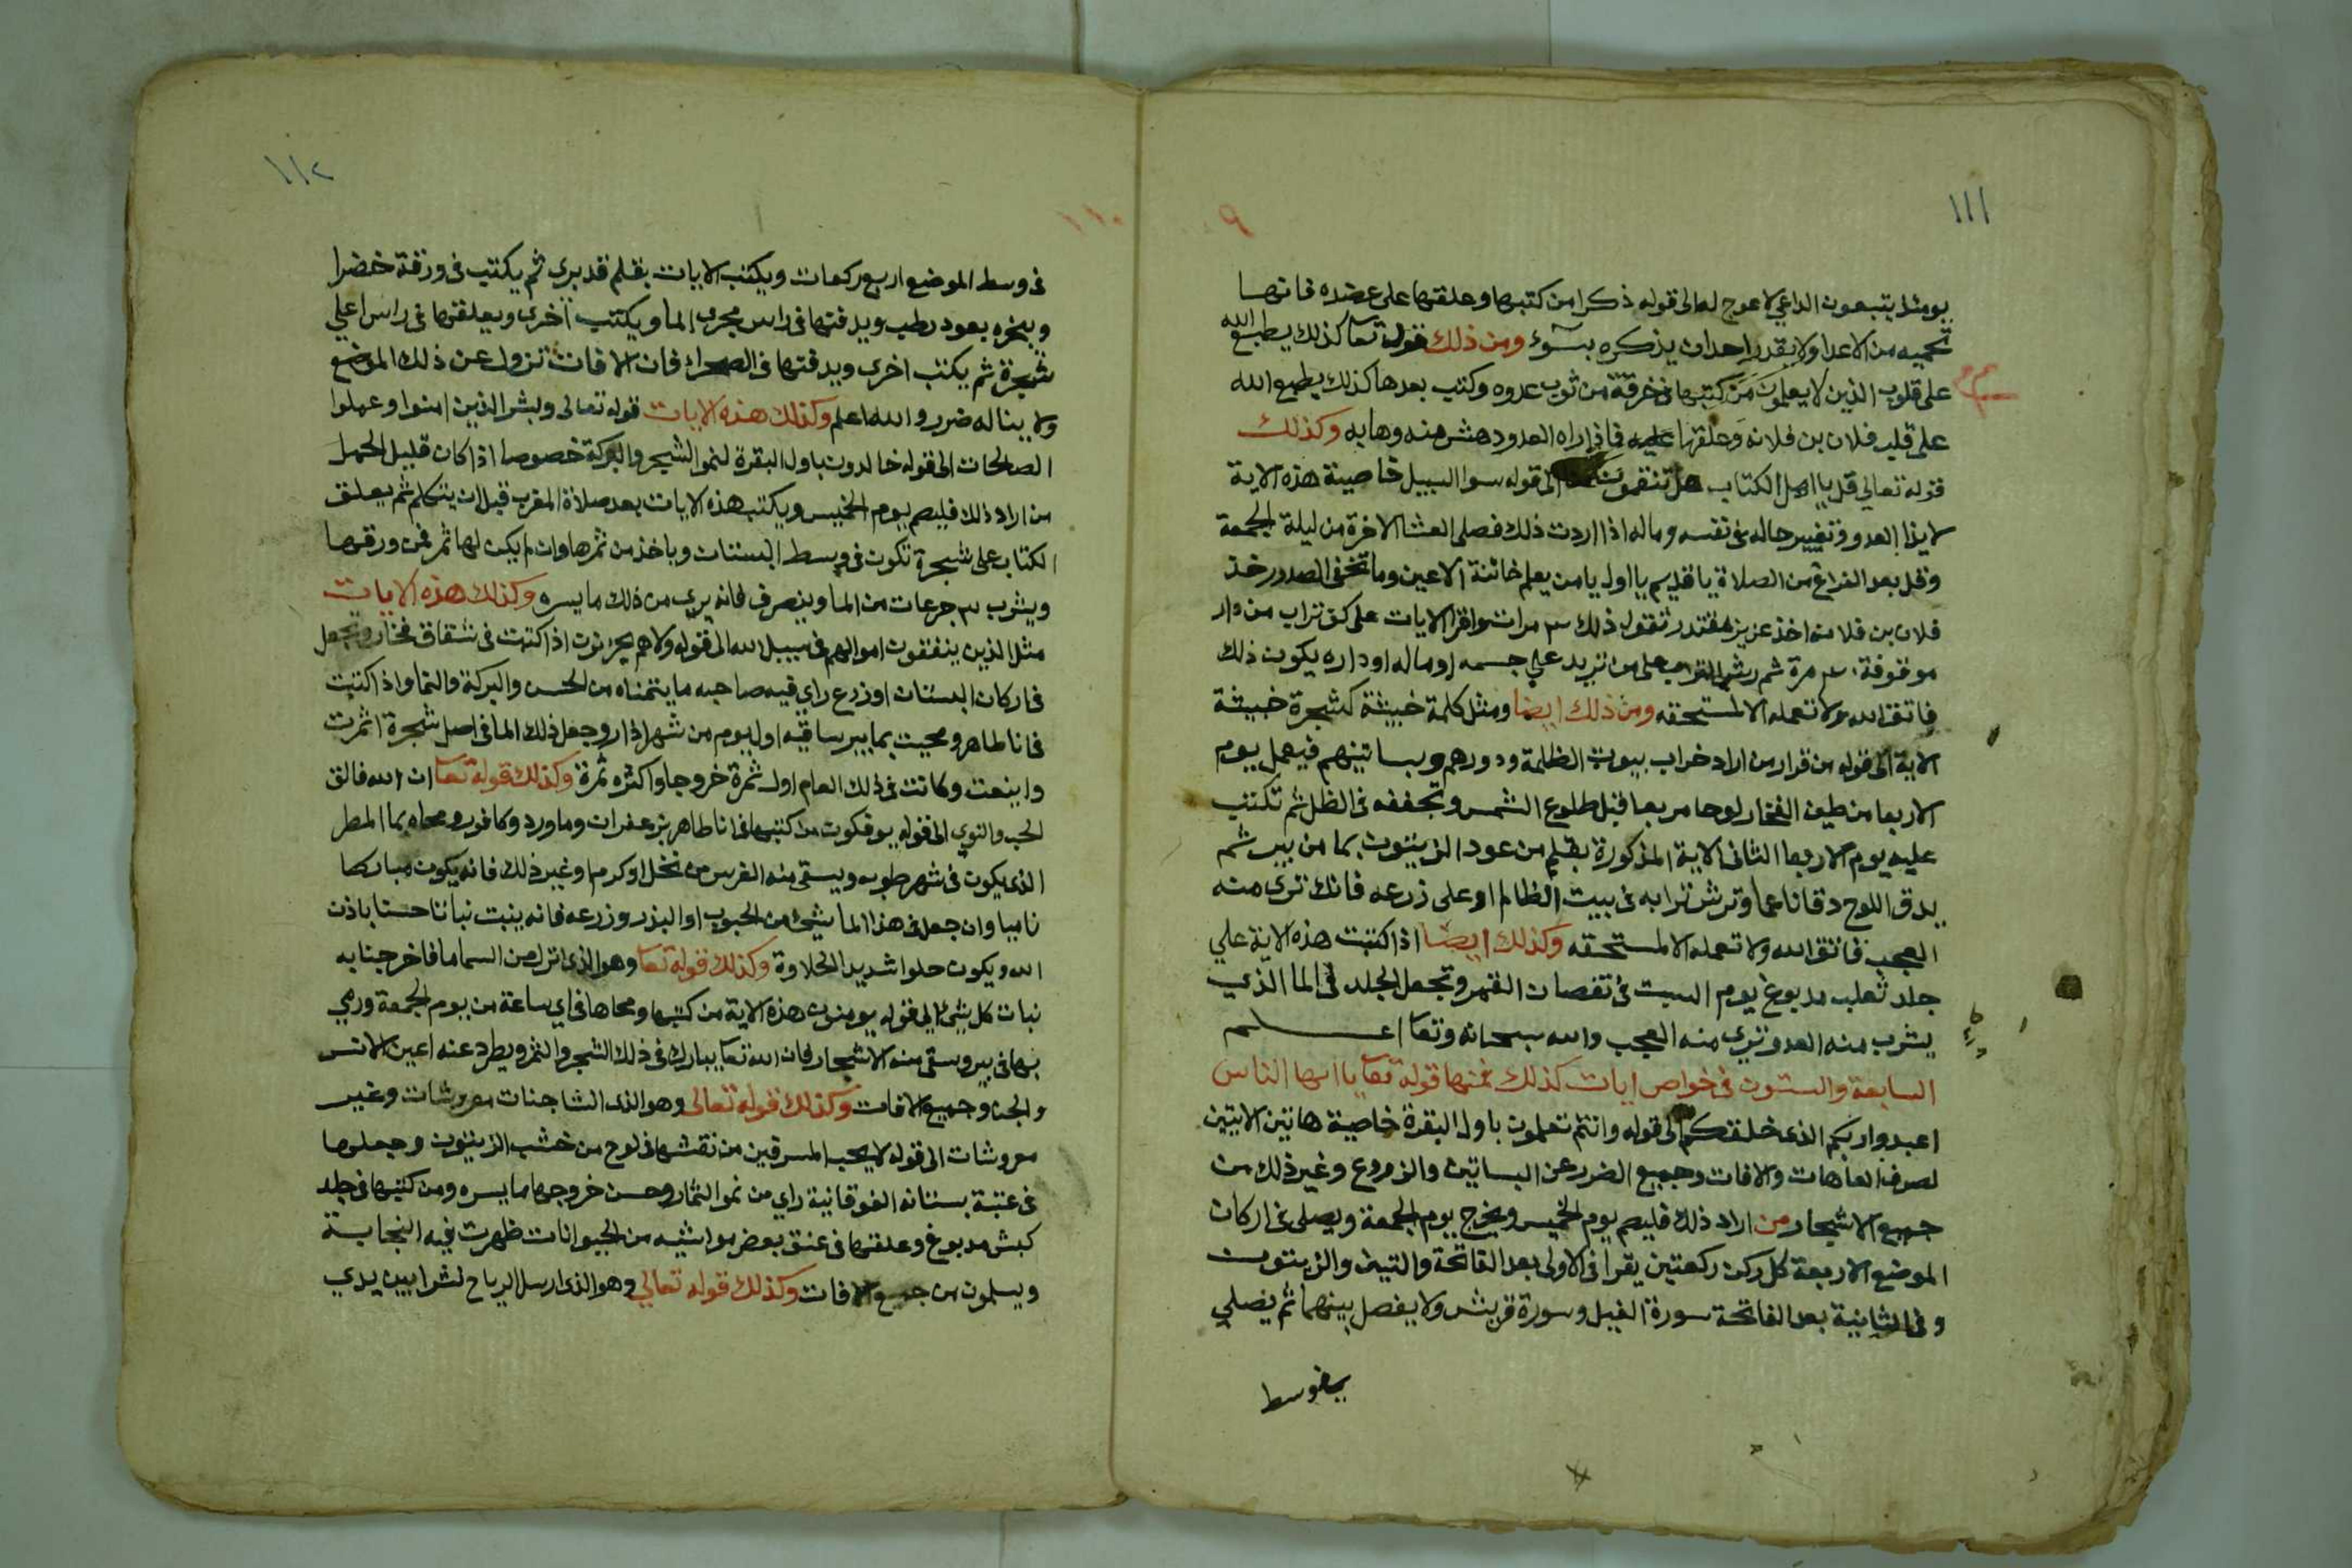 ١١١
يومئذ يتبعون الداعي لا عوج له الى قوله ذكرا من كتبها وعلقها على عضده فانها
تحميه من الاعدا ولا يقدر احدان يذكره بسوء ومن ذلك قوله تعا كذلك يطبع الله
على قلوب الذين لا يعلمون من كتبها في خرقة من ثوب عدوه وكتب بعدها كذلك يطبع الله
على قلب فلان بن فلانه وعلقها عليه فاذا راه العدو دهش منه وهابه وكذلك
قوله تعالي قل يا اهل الكتاب هل تنقمون الى قوله سوا السبيل خاصية هذه الاية
لايذا العدو وتغيير حاله في نفسه وماله اذا اردت ذلك فصلى العشا الاخرة من ليلة الجمعة
وقل بعد الفراغ من الصلاة يا قديم يا اول يا من يعلم خائنة الاعين وما تخفى الصدور خذ
فلان بن فلانه اخذ عزيز مقتدر تقول ذلك ٣ مرات واقرا الايات على كف تراب من دار
موقوفة مرة ثم رش التراب على من تريد علي جسمه او ماله او داره يكون ذلك
فاتق الله ولا تعمله الا لمستحقه ومن ذلك ايضا ومثل كلمة خبيثة كشجرة خبيثة
الاية الى قوله من قرار من اراد خراب بيوت الظلمة ودورهم وبساتينهم فيعمل يوم
الاربعا من طين الفخار لوحا مربعا قبل طلوع الشمس وتجففه في الظل ثم تكتب
عليه يوم الاربعا الثانى الاية المذكورة بقلم من عود الزيتون بما من بير ثم
يدق اللوح دقا ناعما وترش ترابه في بيت الظالم او على زرعه فانك ترى منه
العجب فاتق الله ولا تعمله الا لمستحقه وكذلك ايضا اذا كتبت هذه الاية علي
جلد ثعلب مدبوغ يوم السبت في نقصان القمر وتجعل الجلد في الما الذي
يشرب منه العدو ترى منه العجب والله سبحانه وتعا اعلم
السابعة والستون في خواص ايات كذلك فمنها قوله تعا يا ايها الناس
اعبدوا ربكم الذى خلقكم الى قوله وانتم تعلمون باول البقرة خاصية هاتين الايتين
لصرف العاهات والافات وجميع الضرر عن البساتين والزروع وغير ذلك من
جميع الاشجار من اراد ذلك فليصم يوم الخميس ويخرج يوم الجمعة ويصلى في اركان
الموضع الاربعة كل ركن ركعتين يقرا في الاولى بعد الفاتحة والتين والزيتون
وفي الثانية بعد الفاتحة سورة الفيل وسورة قريش ولا يفصل بينهما ثم يصلي
في وسط
١١٢
١١٠
فى وسط الموضع اربع ركعات ويكتب الايات بقلم قد برى ثم يكتب فى ورقة خضرا
ويبخره بعود رطب ويدفنها فى راس مجرى الما ويكتب اخرى ويعلقها فى راس اعلي
شجرة ثم يكتب اخرى ويدفنها فى الصحراء فان الافات تزول عن ذلك الموضع
ولا يناله ضرر والله اعلم وكذلك هذه الايات قوله تعالى وبشر الذين امنوا وعملوا
الصالحات الى قوله خالدون باول البقرة لنمو الشجر والبركة خصوصا اذا كان قليل الحمل
من اراد ذلك فليصم يوم الخميس ويكتب هذه الايات بعد صلاة المغرب قبل ان يتكلم ثم يعلق
الكتاب على شجرة تكون في وسط البستان وياخذ من ثمرها وان لم يكن لها ثمر فمن ورقها
ويشرب ٣ جرعات من الما وينصرف فانه يرى من ذلك ما يسره وكذلك هذه الايات
مثل الذين ينفقون اموالهم فى سبيل الله الى قوله ولا هم يحزنون اذا كتبت فى شقاف فخار وتجعل
فى اركان البستان او زرع راي فيه صاحبه ما يتمناه من الحسن والبركة والنما واذا كتبت
فى انا طاهر ومحيت بما بير ساقيه اول يوم من شهر اذار وجعل ذلك الما فى اصل شجرة اثمرت
واينعت وكانت فى ذلك العام اول ثمرة خروجا واكثره ثمرة وكذلك قوله تعا ان الله فالق
الحب والنوى الى قوله يوفكون من كتبها فى انا طاهر بزعفران وماورد وكافور ومحاه بما المطر
الذى يكون فى شهر طوبه ويسقى منه الغرس من نخل او كرم او غير ذلك فانه يكون مباركا
ناميا وان جعل فى هذا الما شيئ من الحبوب او البزر وزرعه فانه ينبت نباتا حسنا باذن
الله ويكون حلوا شديد الحلاوة وكذلك قوله تعا وهو الذى انزل من السما ما فاخرجنا به
نبات كل شيئ الى قوله يومنون هذه الاية من كتبها ومحاها فى اي ساعة من يوم الجمعة ورمي
بها فى بير وسقى منه الاشجار فان الله تعا يبارك فى ذلك الشجر والثمر ويطرد عنه اعين الانس
والجن وجميع الافات وكذلك قوله تعالى وهو الذى انشا جنات معروشات وغير
معروشات الى قوله لا يحب المسرفين من نقشها فى لوح من خشب الزيتون وجعلها
فى عتبة بستانه الفوقانية راي من نمو الثمار وحسن خروجها ما يسره ومن كتبها فى جلد
كبش مدبوغ وعلقها فى عنق بعض مواشيه من الحيوانات ظهرت فيه النجابة
ويسلمون من جميع الافات وكذلك قوله تعالي وهو الذى ارسل الرياح نشرا بين يدي